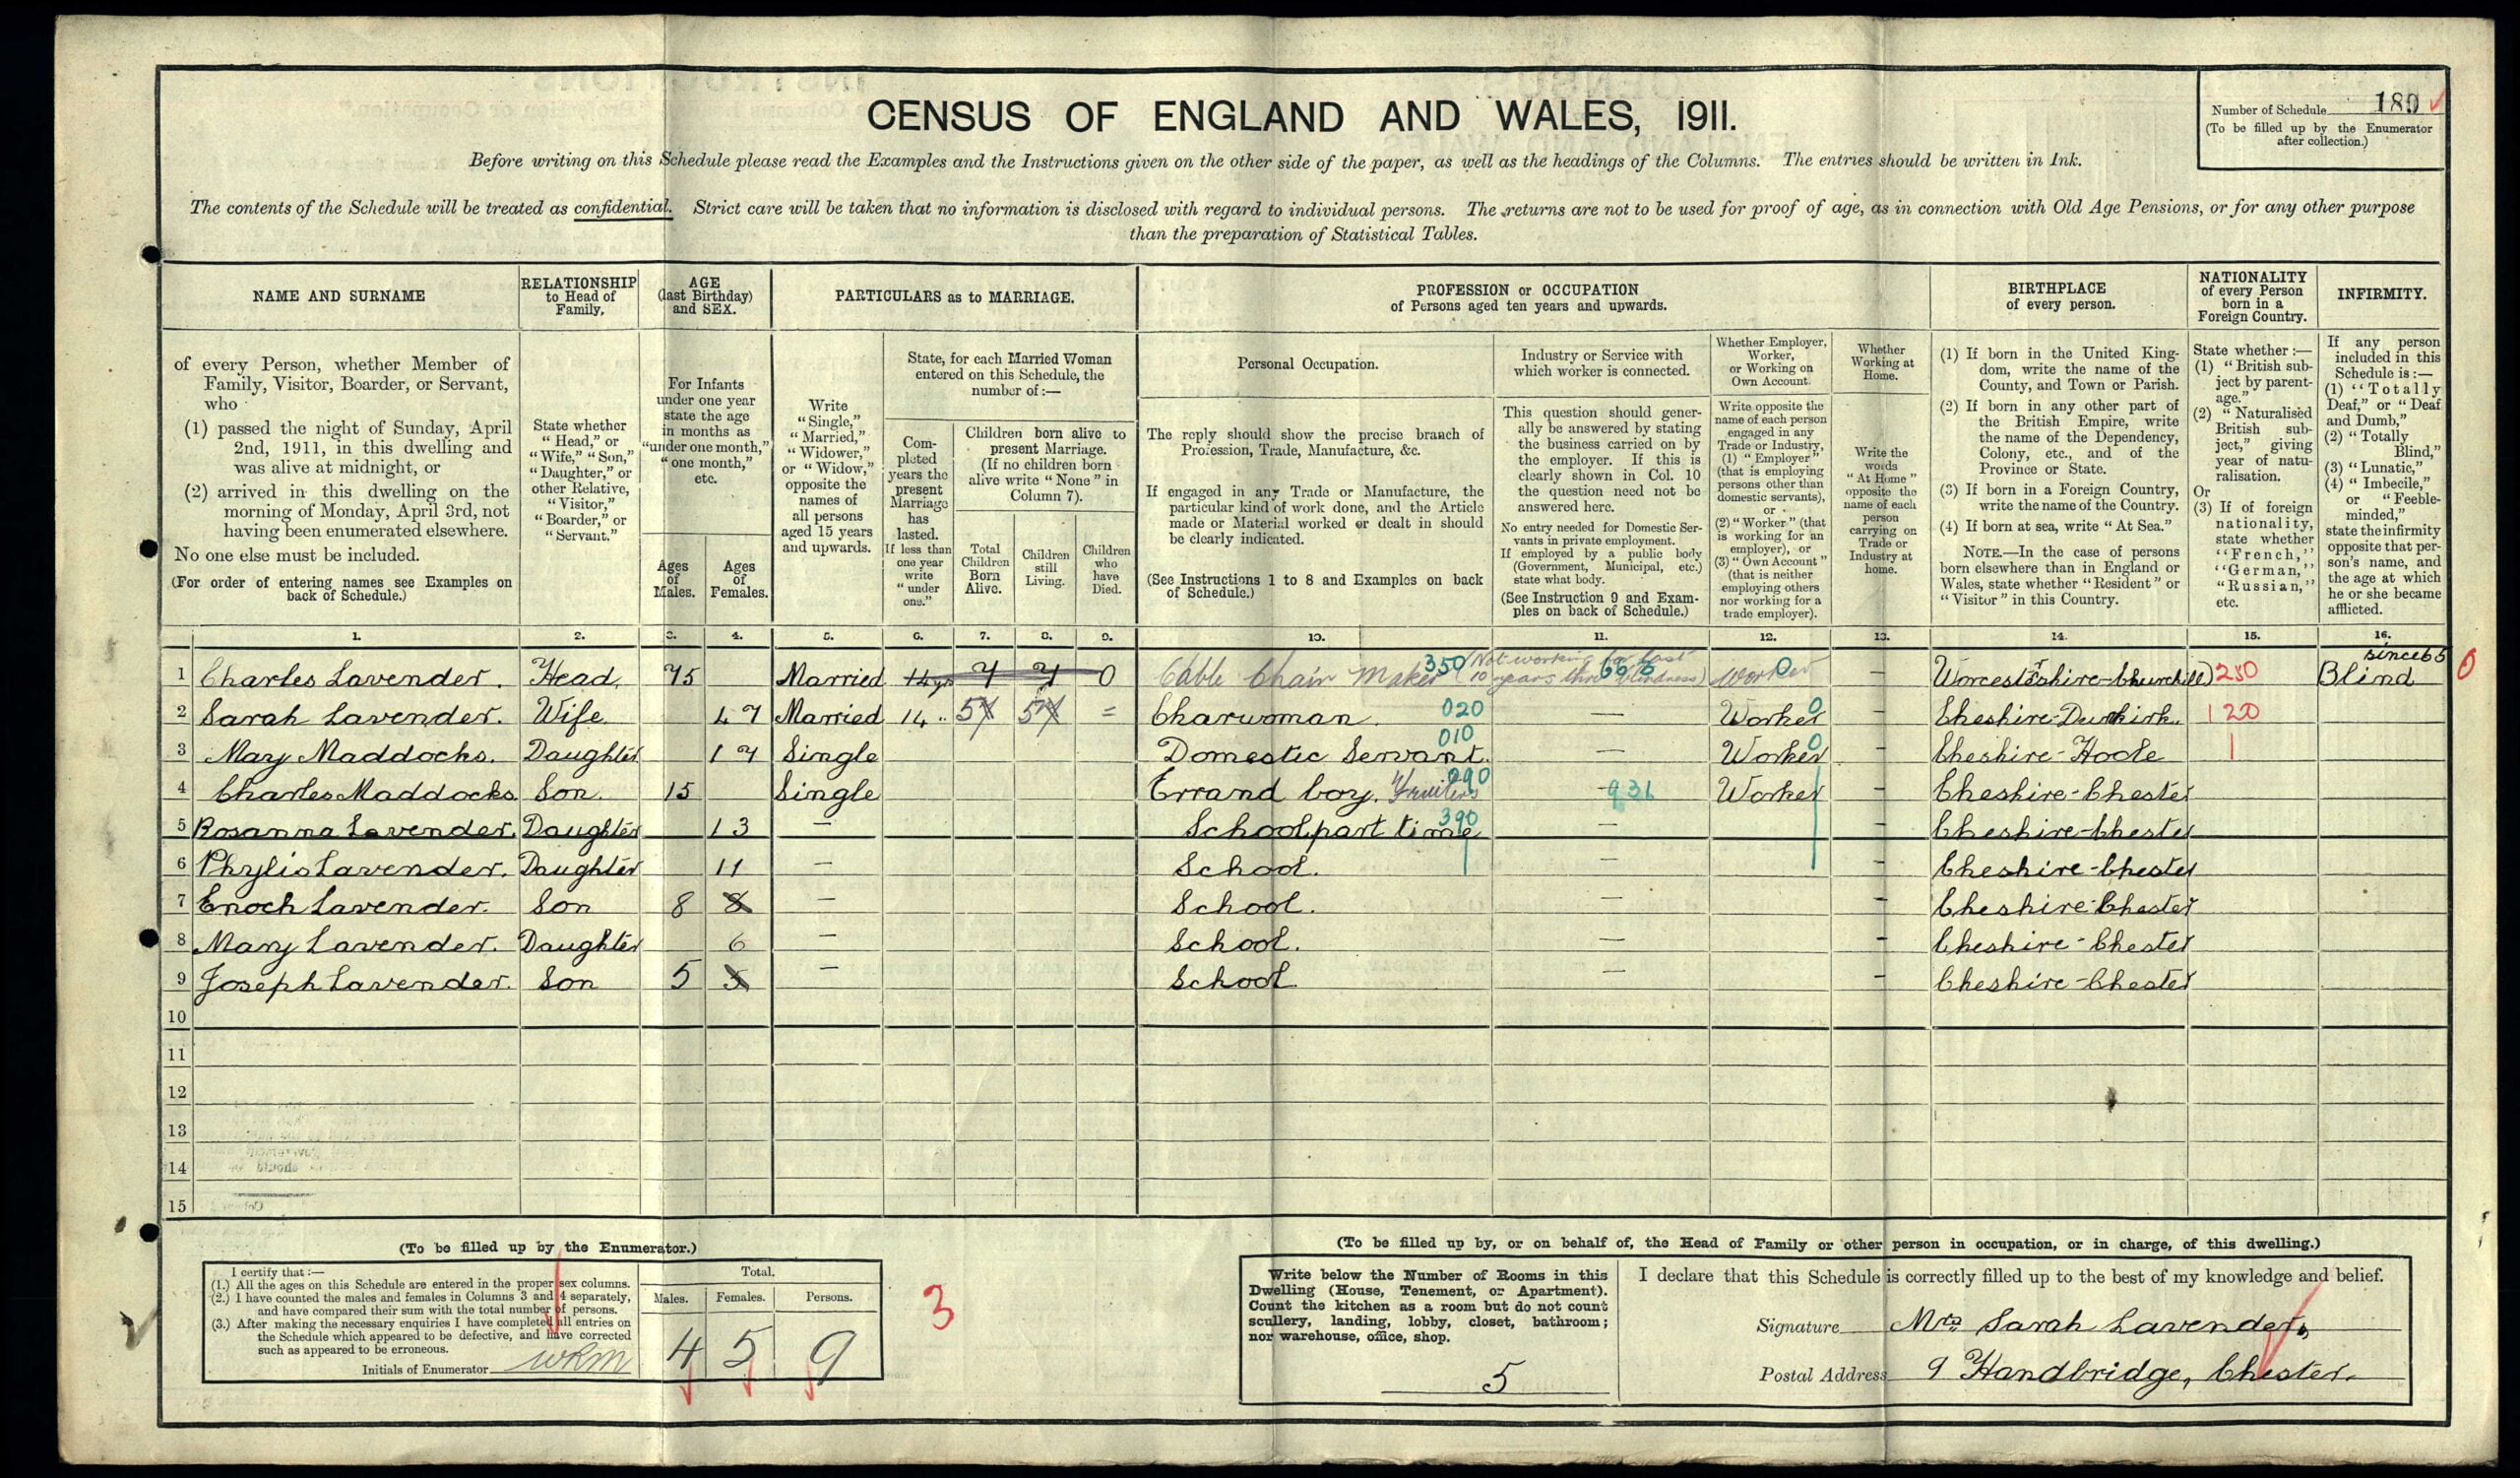 Number of Schedule 180
(To be filled up by the Enumerator after collection.)
CENSUS OF ENGLAND AND WALES, 1911.
Before writing on this Schedule please read the Examples and the Instructions given on the other side of the paper, as well as the headings of the Columns. The entries should be written in Ink.
The contents of the Schedule will be treated as confidential. Strict care will be taken that no information is disclosed with regard to individual persons. The returns are not to be used for proof of age, as in connection with Old Age Pensions, or for any other purpose
than the preparation of Statistical Tables.
NAME AND SURNAME
RELATIONSHIP
to Head of
Family.
AGE
(last Birthday)
and SEX.
PARTICULARS as to MARRIAGE.
PROFESSION or OCCUPATION
of Persons aged ten years and upwards.
BIRTHPLACE
of every person.
NATIONALITY
of every Person
born in a
Foreign Country.
INFIRMITY.
of every Person, whether Member of
Family, Visitor, Boarder, or Servant,
who
(1) passed the night of Sunday, April
2nd, 1911, in this dwelling and
was alive at midnight, or
(2) arrived in this dwelling on the
morning of Monday, April 3rd, not
having been enumerated elsewhere.
No one else must be included.
(For order of entering names see Examples on
back of Schedule.)
State whether
"Head," or
"Wife," "Son,"
"Daughter," or
other Relative,
"Visitor,"
"Boarder," or
"Servant."
For Infants
under one year
state the age
in months as
"under one month,"
"one month,"
etc.
Ages
of
Males.
Ages
of
Females.
Write
"Single,"
"Married,"
"Widower,"
or "Widow,"
opposite the
names of
all persons
aged 15 years
and upwards.
State, for each Married Woman
entered on this Schedule, the
number of:—
Com-
pleted
years the
present
Marriage
has
lasted.
If less than
one year
write
"under
one."
Children born alive to
present Marriage.
(If no children born
alive write "None" in
Column 7).
Total
Children
Born
Alive.
Children
still
Living.
Children
who
have
Died.
Personal Occupation.
The reply should show the precise branch of
Profession, Trade, Manufacture, &c.
If engaged in any Trade or Manufacture, the
particular kind of work done, and the Article
made or Material worked or dealt in should
be clearly indicated.
(See Instructions 1 to 8 and Examples on back
of Schedule.)
Industry or Service with
which worker is connected.
This question should gener-
ally be answered by stating
the business carried on by
the employer. If this is
clearly shown in Col. 10
the question need not be
answered here.
No entry needed for Domestic Ser-
vants in private employment.
If employed by a public body
(Government, Municipal, etc.)
state what body.
(See Instruction 9 and Exam-
ples on back of Schedule.)
Whether Employer,
Worker,
or Working on
Own Account.
Write opposite the
name of each person
engaged in any
Trade or Industry,
(1) "Employer"
(that is employing
persons other than
domestic servants),
or
(2) "Worker" (that
is working for an
employer), or
(3) "Own Account"
(that is neither
employing others
nor working for a
trade employer).
Whether
Working at
Home.
Write the
words
"At Home"
opposite the
name of each
person
carrying on
Trade or
Industry at
home.
(1) If born in the United King-
dom, write the name of the
County, and Town or Parish.
(2) If born in any other part of
the British Empire, write
the name of the Dependency,
Colony, etc., and of the
Province or State.
(3) If born in a Foreign Country,
write the name of the Country.
(4) If born at sea, write "At Sea."
NOTE.—In the case of persons
born elsewhere than in England or
Wales, state whether "Resident" or
"Visitor" in this Country.
State whether:—
(1) "British sub-
ject by parent-
age."
(2) "Naturalised
British sub-
ject," giving
year of natu-
ralisation.
Or
(3) If of foreign
nationality,
state whether
"French,"
"German,"
"Russian,"
etc.
If any person
included in this
Schedule is:—
(1) "Totally
Deaf," or "Deaf
and Dumb,"
(2) "Totally
Blind,"
(3) "Lunatic,"
(4) "Imbecile,"
or "Feeble-
minded,"
state the infirmity
opposite that per-
son's name, and
the age at which
he or she became
afflicted.
1. 2. 3. 4. 5. 6. 7. 8. 9. 10. 11. 12. 13. 14. 15. 16.
1 Charles Lavender. Head. 75 Married 14 yrs 7 7 0 Cable Chain Maker 350 (Not working for last 10 years thro blindness) Worker 0 — Worcestershire-Churchill) 250 Blind since 65 0
2 Sarah Lavender. Wife. 47 Married 14 .. 5 7 5 7 = Charwoman. 020 — Worker 0 - Cheshire-Dunkirk. 120
3 Mary Maddocks. Daughter 17 Single Domestic Servant. 010 — Worker 0 - Cheshire-Hoole 1
4 Charles Maddocks Son. 15 Single Errand boy. Fruiters 090 931 Worker - Cheshire-Chester
5 Rosanna Lavender. Daughter 13 — School part time 390 — - Cheshire-Chester
6 Phylis Lavender. Daughter 11 — School. — - Cheshire-Chester
7 Enoch Lavender. Son 8 8 — School. — - Cheshire-Chester
8 Mary Lavender. Daughter 6 — School. — - Cheshire-Chester
9 Joseph Lavender. Son 5 5 — School. — - Cheshire-Chester
10
11
12
13
14
15
(To be filled up by the Enumerator.)
I certify that:—
(1.) All the ages on this Schedule are entered in the proper sex columns.
(2.) I have counted the males and females in Columns 3 and 4 separately,
and have compared their sum with the total number of persons.
(3.) After making the necessary enquiries I have completed all entries on
the Schedule which appeared to be defective, and have corrected
such as appeared to be erroneous.
Initials of Enumerator WRM
Total.
Males. Females. Persons.
4 5 9
3
(To be filled up by, or on behalf of, the Head of Family or other person in occupation, or in charge, of this dwelling.)
Write below the Number of Rooms in this
Dwelling (House, Tenement, or Apartment).
Count the kitchen as a room but do not count
scullery, landing, lobby, closet, bathroom;
nor warehouse, office, shop.
5
I declare that this Schedule is correctly filled up to the best of my knowledge and belief.
Signature Mrs Sarah Lavender,
Postal Address 9 Handbridge, Chester.